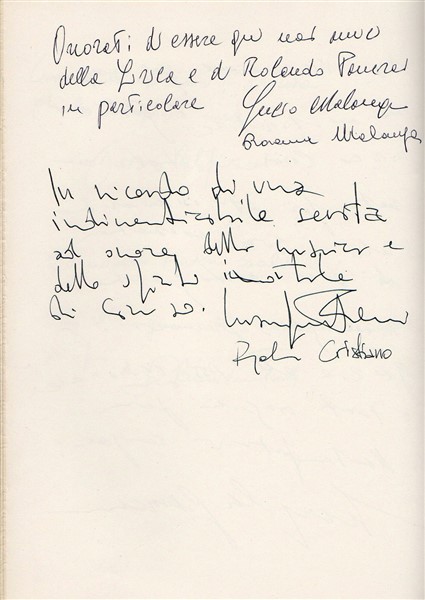 Onorati di essere qui nel nome
della Lirica e di Rolando Panerai
in particolare
Malanga
Giovanna Malanga
In ricordo di una
indimenticabile serata
ad onore della musica e
dello spirito immortale
di Caruso.
Cristiano